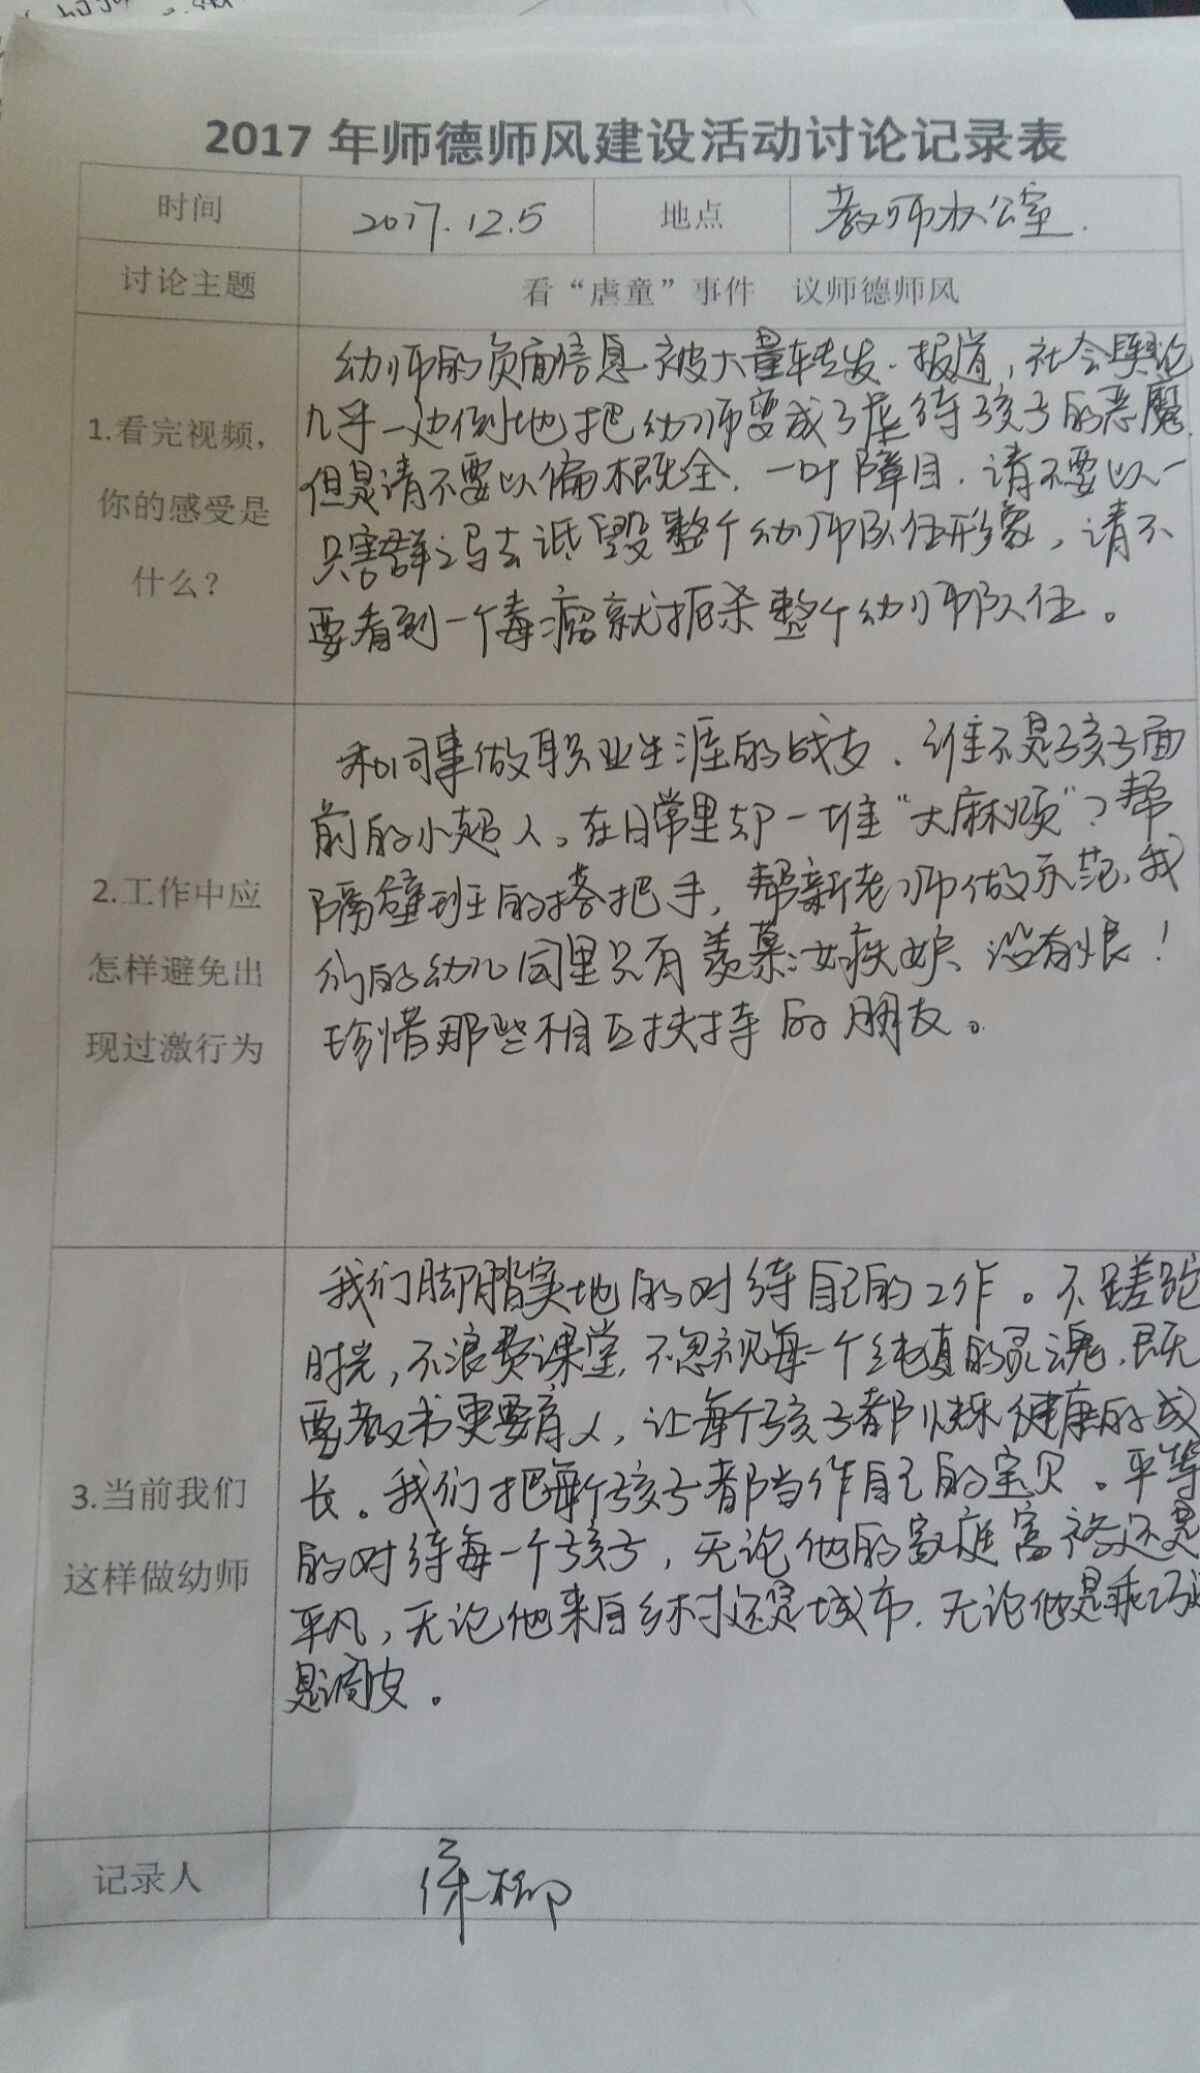 2017年师德师风建设活动讨论记录表
时间 2017.12.5 地点 教师办公室.
讨论主题 看“虐童”事件 议师德师风
1.看完视频,
你的感受是
什么?
幼师的负面信息被大量转发.报道,社会舆论
几乎一边倒地把幼师变成了虐待孩子的恶魔.
但是请不要以偏概全.一叶障目.请不要以一
只害群之马去诋毁整个幼师队伍形象,请不
要看到一个毒瘤就扼杀整个幼师队伍。
2.工作中应
怎样避免出
现过激行为
和同事做职业生涯的战友.谁不是孩子面
前的小超人。在日常里却一堆“大麻烦”?帮
隔壁班的搭把手,帮新老师做示范,我
们的幼儿园里只有羡慕没有嫉妒 没有恨!
珍惜那些相互扶持的朋友。
3.当前我们
这样做幼师
我们脚踏实地的对待自己的工作。不蹉跎
时光,不浪费课堂.不忽视每一个纯真的灵魂.既
要教书更要育人,让每个孩子都快乐健康的成
长。我们把每个孩子都当作自己的宝贝。平等
的对待每一个孩子,无论他的家庭富裕还是
平凡,无论他来自乡村还是城市.无论他是乖巧还
是调皮。
记录人